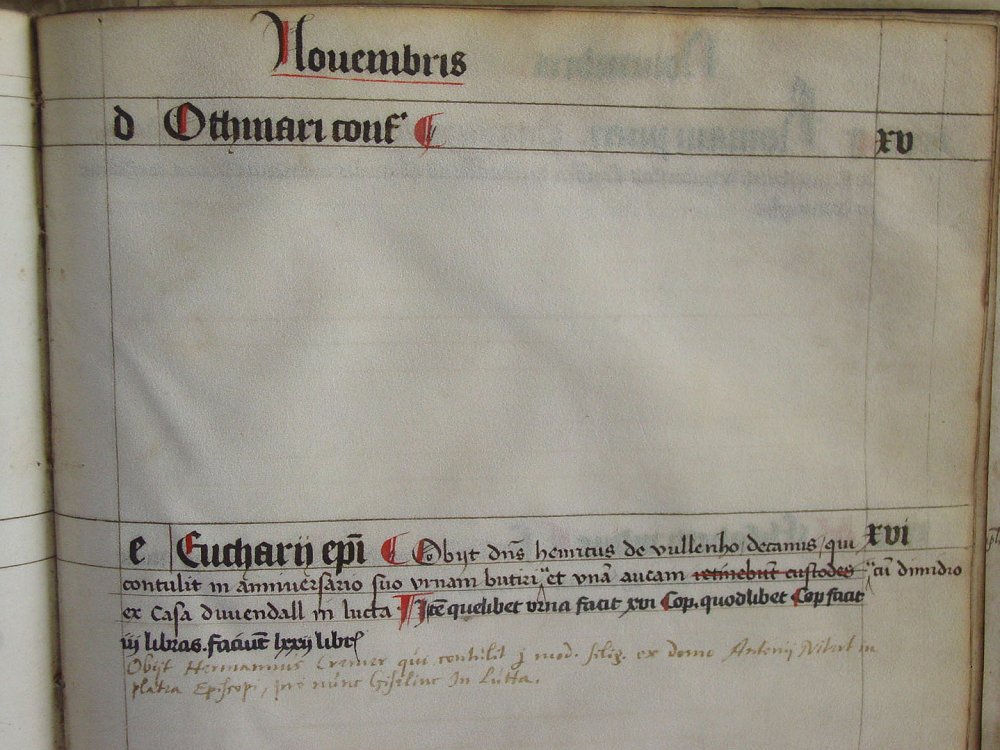 Nouembris
d Othmari conf' xv
e Eucharij epī Obijt dn̄s henricus de vullenho decanus / qui xvi
contulit in anniuersario suo vrnam butiri et vnā aucam retinebūt custodes cū dimidio
ex Casa duuendall in lucta Itē quelibet vrna facit xvi Cop. quodlibet Cop facit
iij libras. faciūt lxxij libr
Obijt Hermannus Cremer qui contulit j mod. silig. ex domo Antonij in
platea Episcopi, pro nunc Giseline In Lutta.